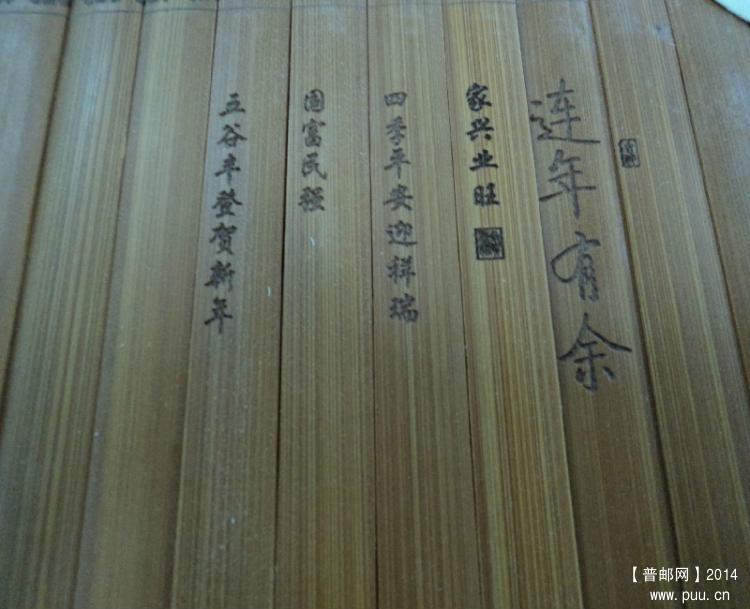 连年有余
家兴业旺
四季平安迎祥瑞
国富民强
五谷丰登贺新年
【普邮网】2014
www.puu.cn